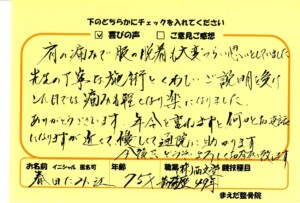 下のどちらかにチェックを入れてください
☑ 喜びの声 □ ご意見ご感想
肩の痛みで服の脱着も大変つらい思いをしていました
先生の丁寧な施術とくわしいご説明を受け
た日では痛みも軽くなり楽になりました。
ありがとうございます。年令を重ねますと何かとお世話
になりますが近くて優しくて通院に助かります
今後とも よろしくお願い致します
お名前 イニシャル 匿名可 年齢 職業 競技種目
75才
まえだ整骨院